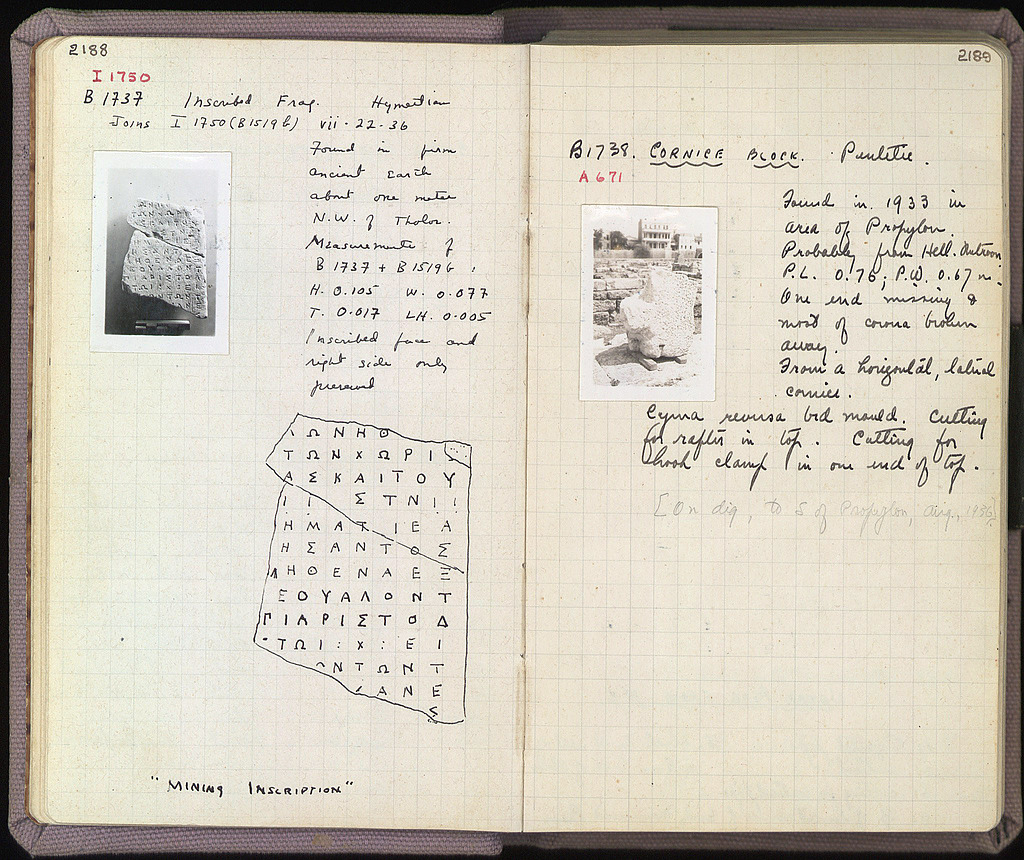 2188
I 1750
B 1737 Inscribed Frag. Hymettian
Joins I 1750 (B1519b) vii·22·36
Found in firm
ancient Earth
about one meter
N.W. of Tholos.
Measurements of
B 1737 + B 1519b :
H. 0.105 W. 0.077
T. 0.017 LH. 0.005
Inscribed face and
right side only
preserved
ΩΝΗΘ
ΤΩΝΧΩΡΙ
ΑΣΚΑΙΤΟΥ
ΣΤΝ
ΗΜΑΤΙΕΑ
ΗΣΑΝΤΟΣ
ΗΘΕΝΑΕΞ
ΕΟΥΑΛΟΝΤ
ΓΙΑΡΙΣΤΟΔ
ΤΩΙ:Χ:ΕΙ
ΝΤΩΝΤ
ΑΝΕ
Σ
"MINING INSCRIPTION"
2189
B1738. CORNICE BLOCK. Penletic.
A 671
Found in 1933 in
area of Propylon.
Probably from Hell. Metroon
P.L. 0.76; P.W. 0.67 m.
One end missing &
most of corona broken
away.
From a horizontal, lateral
cornice.
Cyma reversa bed mould. Cutting
for rafter in top. Cutting for
hook clamp in one end of top.
[On dig, to S of Propylon, Aug., 1956]